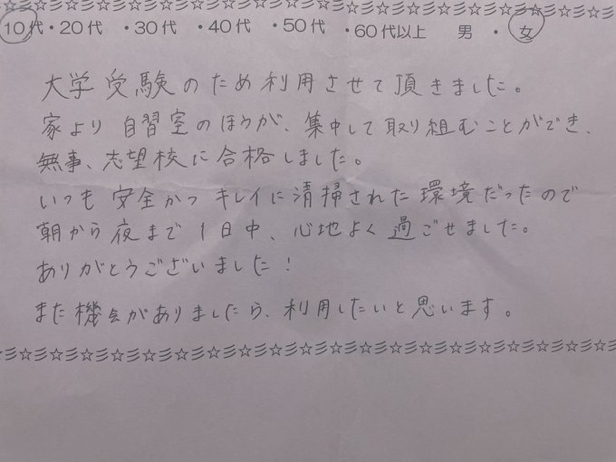 ☆彡☆彡☆彡☆彡☆彡☆彡☆彡☆彡☆彡☆彡☆彡☆彡☆彡☆彡☆彡☆彡☆彡
10代・20代 ・30代 ・40代 ・50代 ・60代以上 男 ・ 女
大学受験のため利用させて頂きました。
家より自習室のほうが、集中して取り組むことができ、
無事、志望校に合格しました。
いつも安全かつキレイに清掃された環境だったので
朝から夜まで1日中、心地よく過ごせました。
ありがとうございました!
また機会がありましたら、利用したいと思います。
彡☆彡☆彡☆彡☆彡☆彡☆彡☆彡☆彡☆彡☆彡☆彡☆彡☆彡☆彡☆彡☆彡